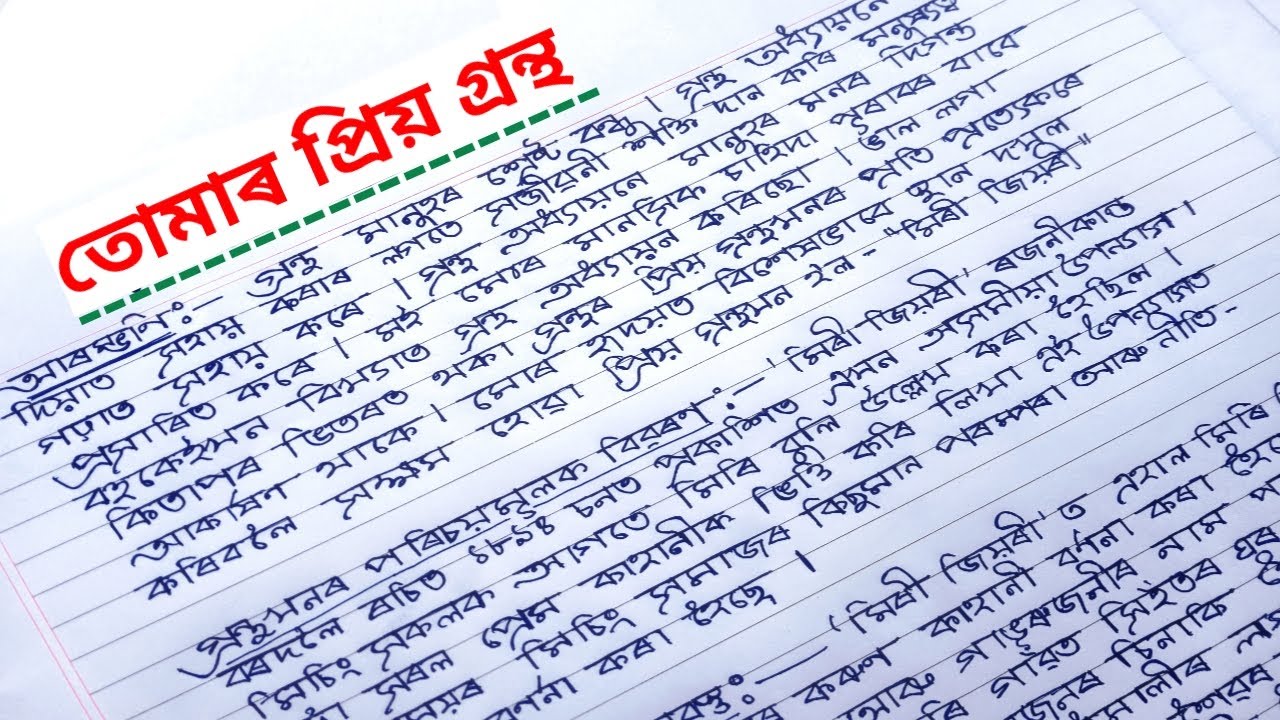 তোমাৰ প্ৰিয় গ্ৰন্থ
আৰম্ভণি:- গ্ৰন্থ মানুহৰ শ্ৰেষ্ট বন্ধু। গ্ৰন্থ অধ্যায়নে
দিয়াত সহায় কৰাৰ লগতে সঞ্জীৱনী শক্তি দান কৰি মনুষ্যত্ব
গঢ়াত সহায় কৰে। গ্ৰন্থ অধ্যায়নে মানুহৰ মনৰ দিগন্ত
প্ৰসাৰিত কৰে। মই মোৰ মানসিক চাহিদা পূৰাবৰ বাবে
বহুকেইখন বিখ্যাত গ্ৰন্থ অধ্যয়ন কৰিছো। ভাল লগা
কিতাপৰ ভিতৰত থকা গ্ৰন্থৰ প্ৰিয় গ্ৰন্থখনৰ প্ৰতি প্ৰত্যেকৰে
আকৰ্ষণ থাকে। মোৰ হৃদয়ত বিশেষভাৱে স্থান দখল
কৰিবলৈ সক্ষম হোৱা প্ৰিয় গ্ৰন্থখন হ'ল- "মিৰী জিয়ৰী"
গ্ৰন্থখনৰ পৰিচয়মূলক বিৱৰণ:- 'মিৰী জিয়ৰী' ৰজনীকান্ত
বৰদলৈ ৰচিত ১৮৯৪ চনত প্ৰকাশিত এখন অসমীয়া উপন্যাস।
মিচিং সকলক আগতে মিৰি বুলি উল্লেখ কৰা হৈছিল।
সৰল প্ৰেম কাহানীক ভিত্তি কৰি লিখা এই উপন্যাসত
সময়ৰ মিচিং সমাজৰ কিছুমান পৰম্পৰা আৰু নীতি-
বৰ্ণনা কৰা হৈছে।
:- 'মিৰী জিয়ৰী'ত এহাল মিৰি
কৰুণ কাহানী বৰ্ণনা কৰা হৈছে
আৰু গাভৰুজনীৰ নাম
গাঁৱত সিহঁতৰ ঘৰ
চিনাকি